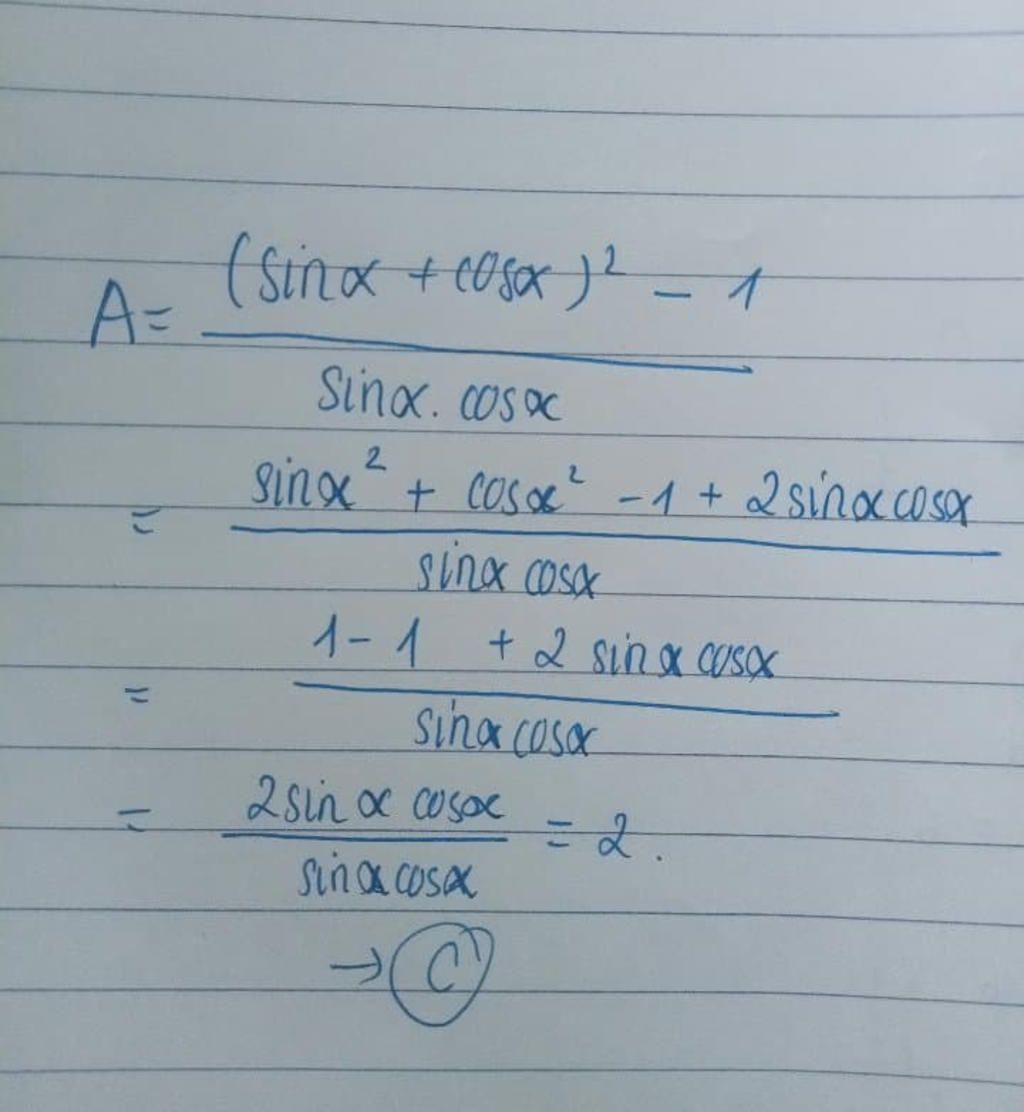 A = ((sinα + cosα)² - 1) / (sinα . cosα)
= (sinα² + cosα² - 1 + 2sinαcosα) / (sinα cosα)
= (1 - 1 + 2 sinα cosα) / (sinα cosα)
= (2sinα cosα) / (sinα cosα) = 2.
→ C